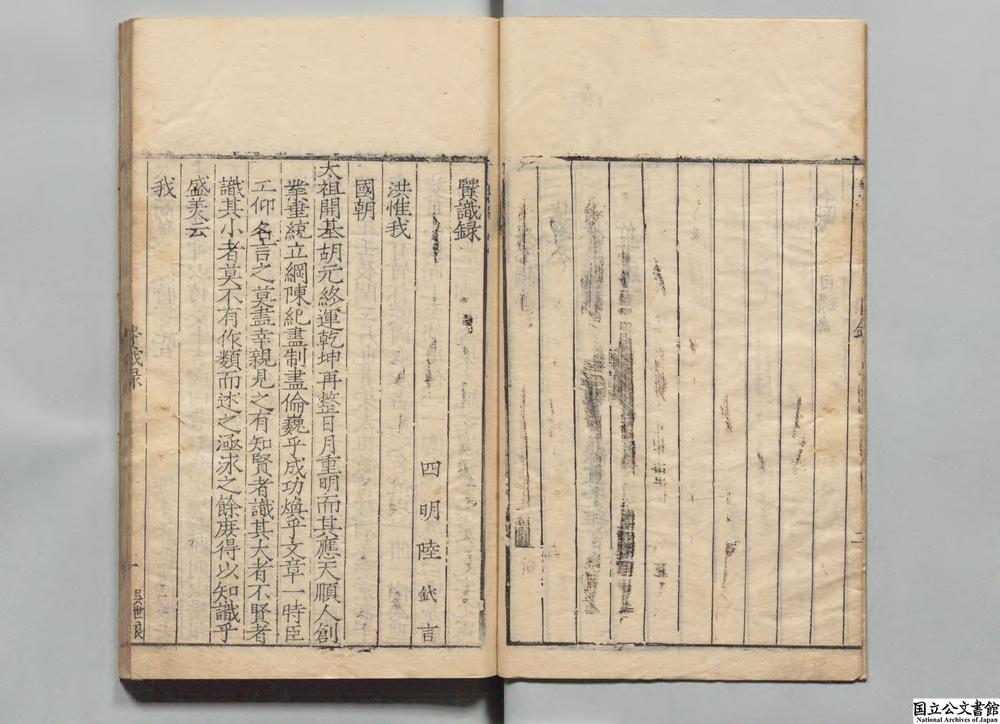 二
賢識録
四明陸釴言
洪惟我
國朝
太祖開基胡元終運乾坤再整日月重明而其應天順人創
業垂統立綱陳紀盡制盡倫巍乎成功煥乎文章一時臣
工仰名言之莫盡幸親見之有知賢者識其大者不賢者
識其小者莫不有作類而述之涵泳之餘庶得以知識乎
盛美云
我
賢識録
一
国立公文書館
National Archives of Japan